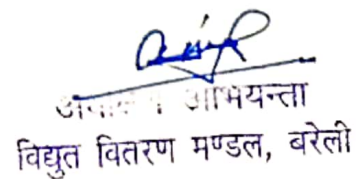 अभियन्ता
विद्युत वितरण मण्डल, बरेली